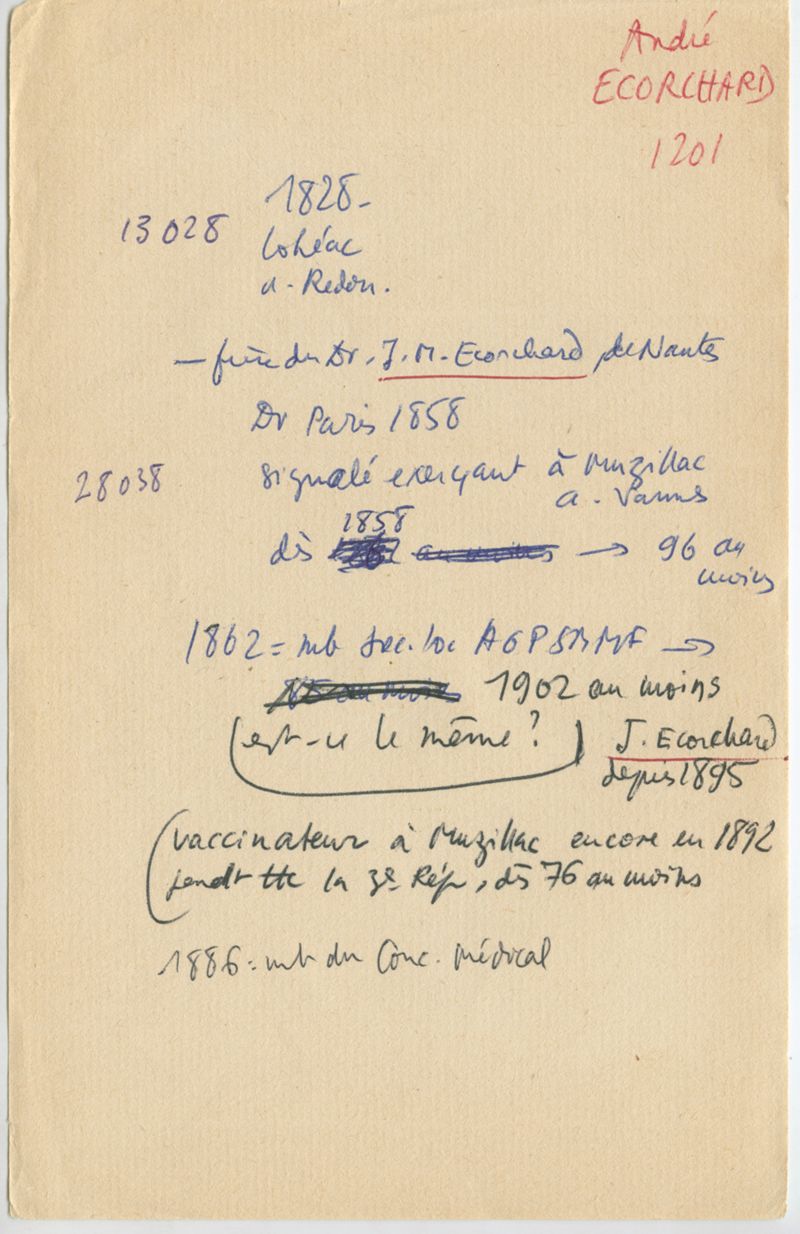 André
ECORCHARD
1201
1828-
13028
Lohéac
a. Redon.
— frère du Dr. J. M. Ecorchard, de Nantes
Dr Paris 1858
28038
signalé exerçant à Muzillac
a. Vannes
1858
dès → 96 au
moins
1862 = mb Soc. loc AGPSMMF →
1902 au moins
(est-ce le même ?) J. Ecorchard
depuis 1895
(vaccinateur à Muzillac encore en 1892
pendt tte la 3e Rép, dès 76 au moins
1886 = mb du Conc. Médical